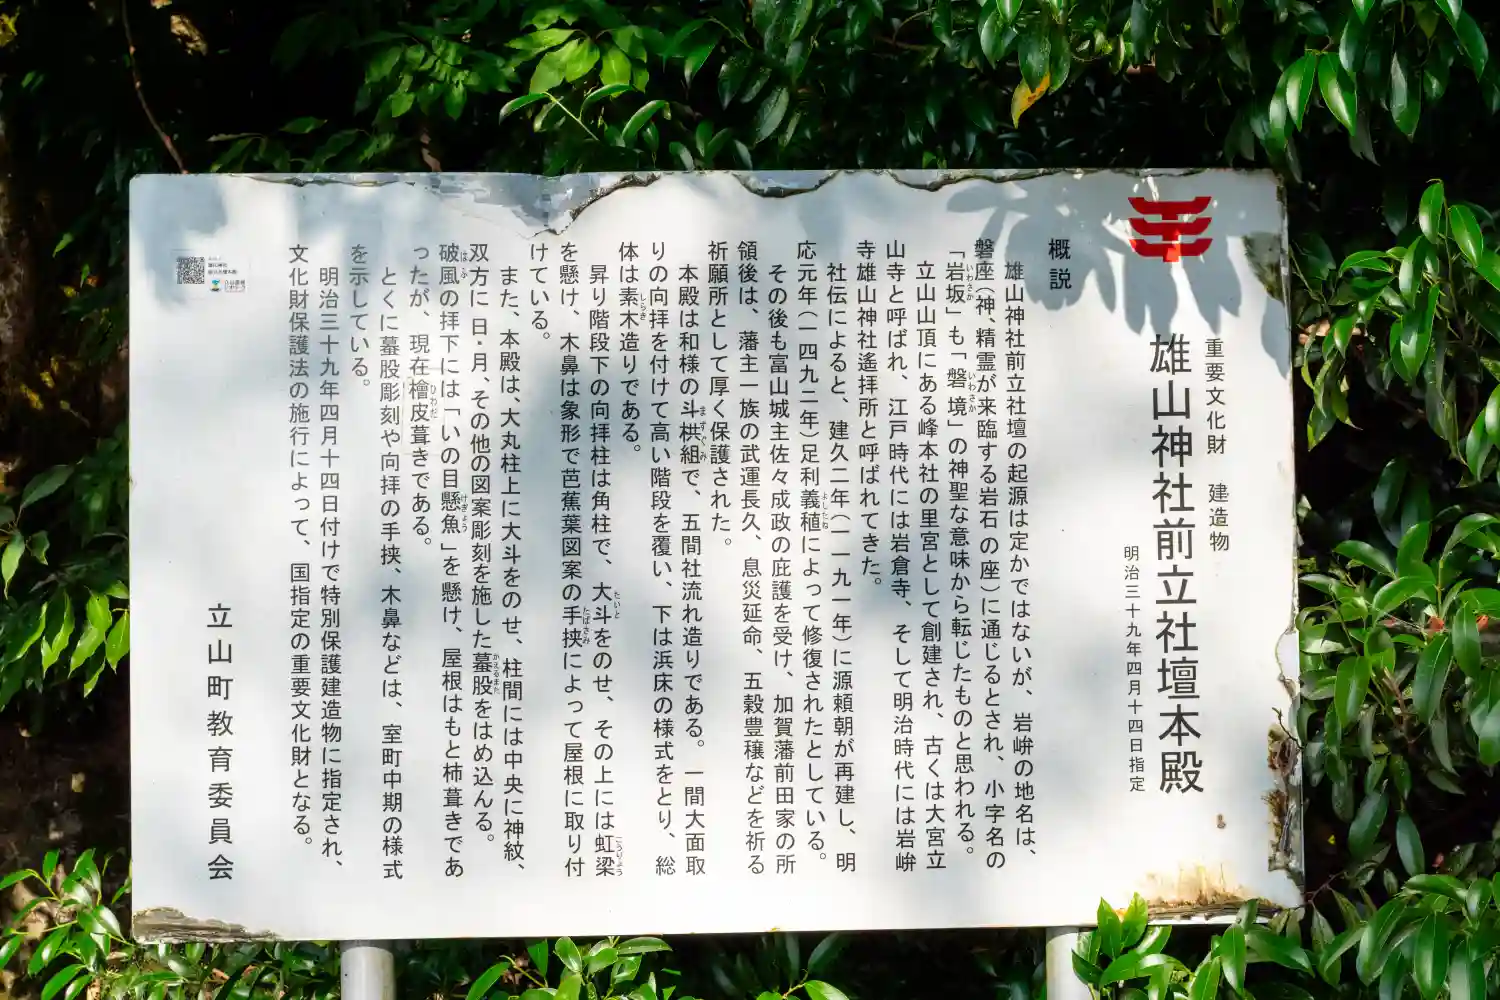 重要文化財　建造物
雄山神社前立社壇本殿
明治三十九年四月十四日指定
概説
雄山神社前立社壇の起源は定かではないが、岩峅の地名は、
磐座（神、精霊が来臨する岩石の座）に通じるとされ、小字名の
「岩坂」も「磐境」の神聖な意味から転じたものと思われる。
いわさか
いわさか
立山山頂にある峰本社の里宮として創建され、古くは大宮立
山寺と呼ばれ、江戸時代には岩倉寺、そして明治時代には岩峅
寺雄山神社遙拝所と呼ばれてきた。
社伝によると、建久二年（一一九一年）に源頼朝が再建し、明
応元年（一四九二年）足利義稙によって修復されたとしている。
よしたね
その後も富山城主佐々成政の庇護を受け、加賀藩前田家の所
領後は、藩主一族の武運長久、息災延命、五穀豊穣などを祈る
祈願所として厚く保護された。
本殿は和様の斗栱組で、五間社流れ造りである。一間大面取
ますぐみ
りの向拝を付けて高い階段を覆い、下は浜床の様式をとり、総
体は素木造りである。
しらき
昇り階段下の向拝柱は角柱で、大斗をのせ、その上には虹梁
たいと
こうりょう
を懸け、木鼻は象形で芭蕉葉図案の手挟によって屋根に取り付
たばさみ
けている。
また、本殿は、大丸柱上に大斗をのせ、柱間には中央に神紋、
双方に日・月、その他の図案彫刻を施した蟇股をはめ込んる。
かえるまた
破風の拝下には「いの目懸魚」を懸け、屋根はもと柿葺きであ
はふ
げぎょう
ったが、現在檜皮葺きである。
ひわだ
とくに蟇股彫刻や向拝の手挟、木鼻などは、室町中期の様式
を示している。
明治三十九年四月十四日付けで特別保護建造物に指定され、
文化財保護法の施行によって、国指定の重要文化財となる。
立山町教育委員会